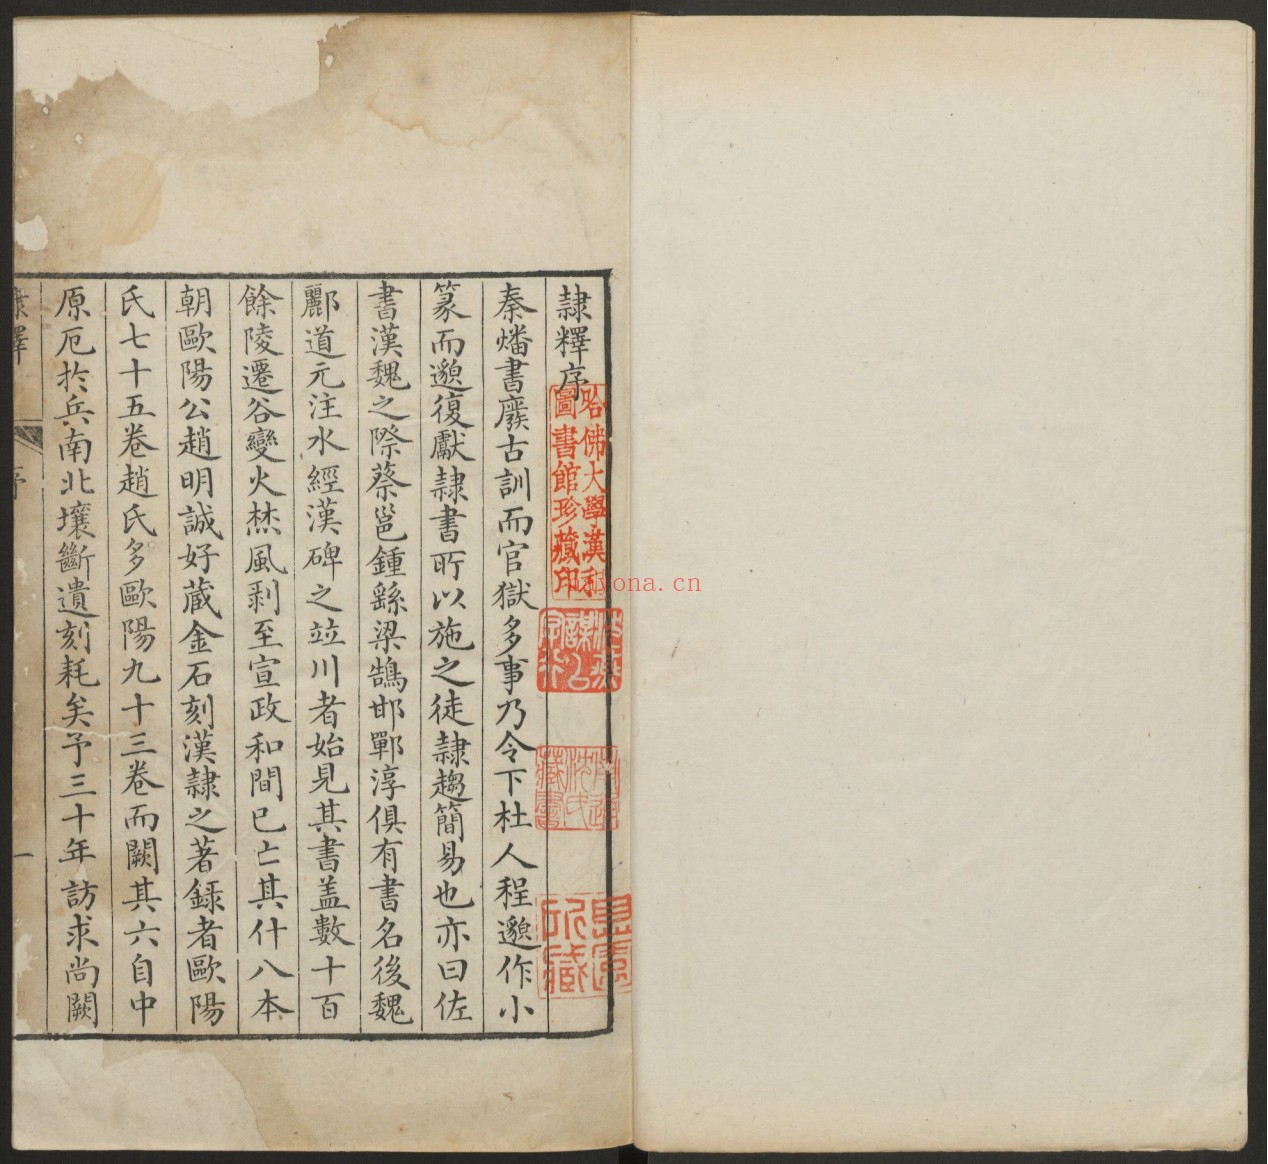 隷釋序
秦燔書廢古訓而官獄多事乃令下杜人程邈作小
篆而邈復獻隷書所以施之徒隷趨簡易也亦曰佐
書漢魏之際蔡邕鍾繇梁鵠邯鄲淳俱有書名後魏
酈道元注水經漢碑之竝川者始見其書盖數十百
餘陵遷谷變火焚風剥至宣政和間已亡其什八本
朝歐陽公趙明誠好藏金石刻漢隷之著録者歐陽
氏七十五卷趙氏多歐陽九十三卷而闕其六自中
原厄於兵南北壤斷遺刻耗矣予三十年訪求尚闕
隷釋
序
一
哈佛大學漢和
圖書館珍藏印
沈氏
藏書
所藏
nayona.cn